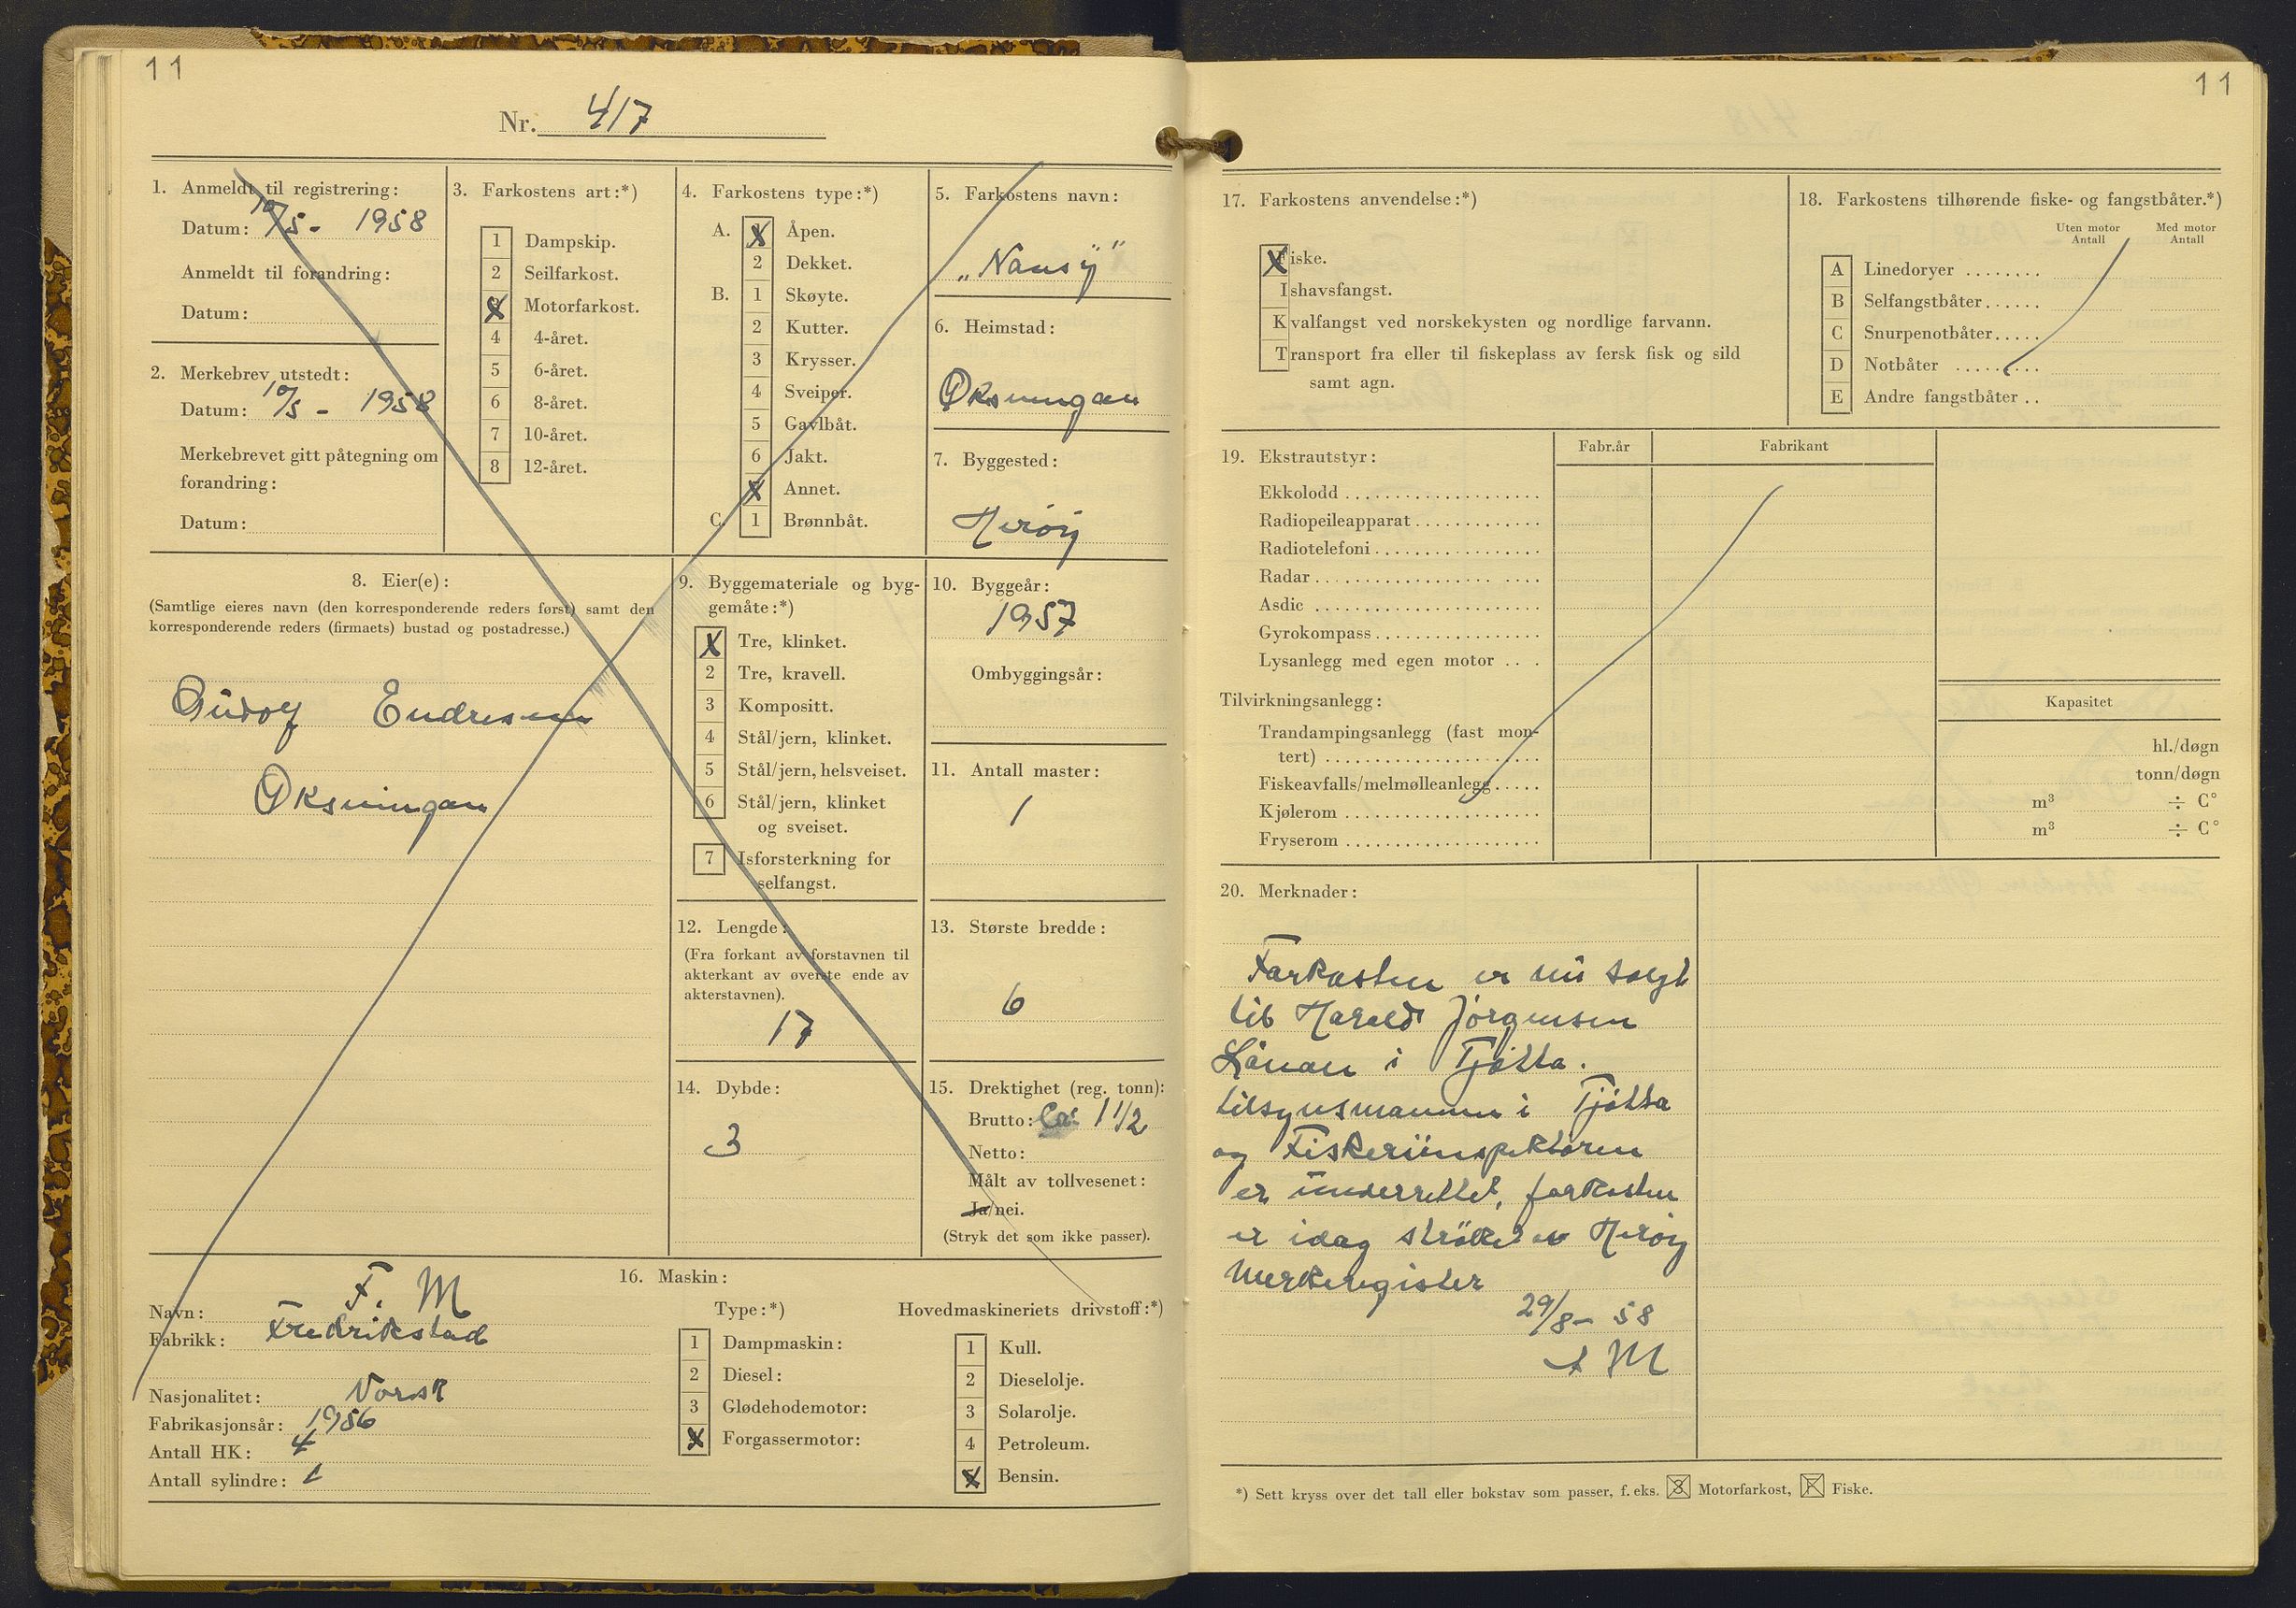 11
Nr. 417
1. Anmeldt til registrering:
Datum: 10/5 - 1958
Anmeldt til forandring:
Datum:
2. Merkebrev utstedt:
Datum: 10/5 - 1958
Merkebrevet gitt påtegning om
forandring:
Datum:
3. Farkostens art:*)
1 Dampskip.
2 Seilfarkost.
X Motorfarkost.
4 4-året.
5 6-året.
6 8-året.
7 10-året.
8 12-året.
4. Farkostens type:*)
A. X Åpen.
2 Dekket.
B. 1 Skøyte.
2 Kutter.
3 Krysser.
4 Sveiper.
5 Gavlbåt.
6 Jakt.
X Annet.
C. 1 Brønnbåt.
5. Farkostens navn:
„Nansy"
6. Heimstad:
Øksningan
7. Byggested:
Herøy
8. Eier(e):
(Samtlige eieres navn (den korresponderende reders først) samt den
korresponderende reders (firmaets) bustad og postadresse.)
Endresen
Øksningan
9. Byggemateriale og byg-
gemåte:*)
X Tre, klinket.
2 Tre, kravell.
3 Kompositt.
4 Stål/jern, klinket.
5 Stål/jern, helsveiset.
6 Stål/jern, klinket
og sveiset.
7 Isforsterkning for
selfangst.
10. Byggeår:
1957
Ombyggingsår:
11. Antall master:
1
12. Lengde:
(Fra forkant av forstavnen til
akterkant av øverste ende av
akterstavnen).
17
13. Største bredde:
6
14. Dybde:
3
15. Drektighet (reg. tonn):
Brutto: Ca: 1 1/2
Netto:
Målt av tollvesenet:
Ja/nei.
(Stryk det som ikke passer).
16. Maskin:
Navn: F. M
Fabrikk: Fredrikstad
Nasjonalitet: Norsk
Fabrikasjonsår: 1956
Antall HK: 4
Antall sylindre: 1
Type:*)
1 Dampmaskin:
2 Diesel:
3 Glødehodemotor:
X Forgassermotor:
Hovedmaskineriets drivstoff:*)
1 Kull.
2 Dieselolje.
3 Solarolje.
4 Petroleum.
X Bensin.
11
17. Farkostens anvendelse:*)
Fiske.
Ishavsfangst.
Kvalfangst ved norskekysten og nordlige farvann.
Transport fra eller til fiskeplass av fersk fisk og sild
samt agn.
18. Farkostens tilhørende fiske- og fangstbåter.*)
Uten motor Med motor
Antall Antall
A Linedoryer ........
B Selfangstbåter......
C Snurpenotbåter.....
D Notbåter .........
E Andre fangstbåter ..
19. Ekstrautstyr:
Fabr.år Fabrikant
Ekkolodd ....................
Radiopeileapparat.............
Radiotelefoni.................
Radar........................
Asdic .......................
Gyrokompass.................
Lysanlegg med egen motor ...
Tilvirkningsanlegg:
Kapasitet
Trandampingsanlegg (fast mon-
tert) ...................... hl./døgn
Fiskeavfalls/melmølleanlegg..... tonn/døgn
Kjølerom .................... m³ ÷ C°
Fryserom .................... m³ ÷ C°
20. Merknader:
Farkosten er nu solgt
til Harald Jørgensen
Lånan i Tjøtta.
tilsynsmannen i Tjøtta
og Fiskeriinspektøren
er underrettet, farkosten
er idag strøket av Herøy
Merkeregister
29/8 - 58
M
*) Sett kryss over det tall eller bokstav som passer, f. eks. 3 Motorfarkost, F Fiske.